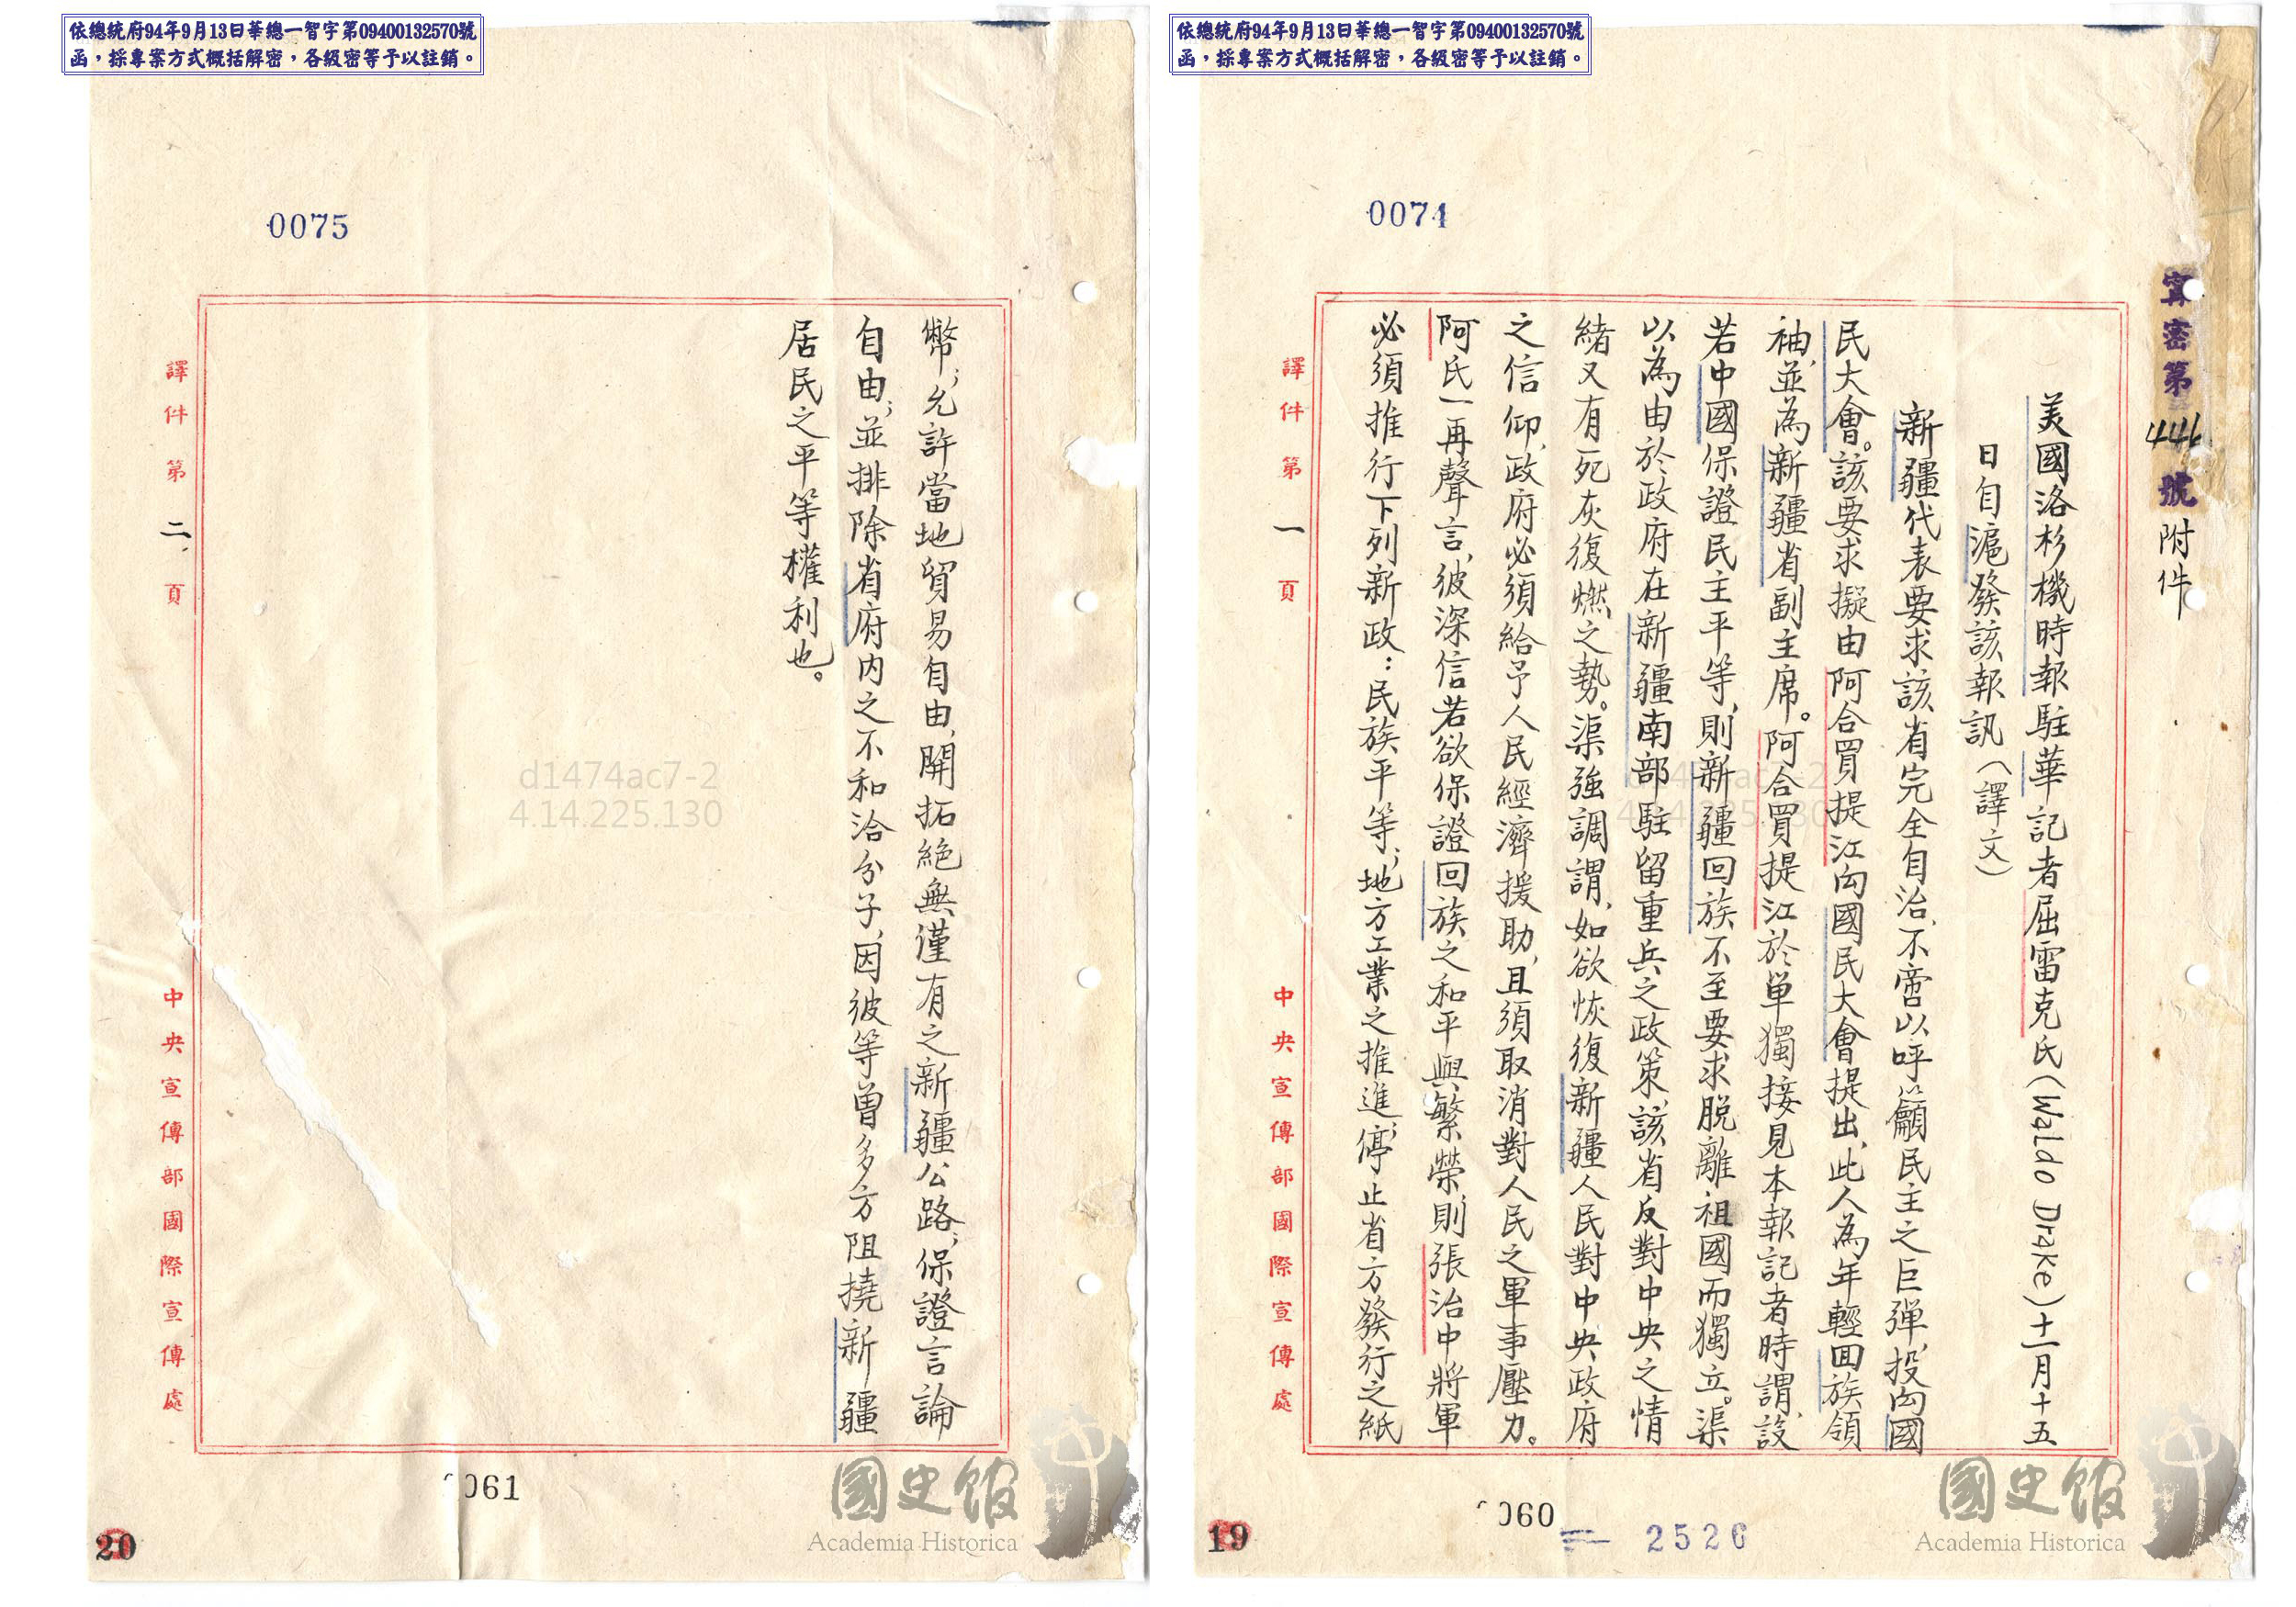 依總統府94年9月13日華總一智字第09400132570號
函，採專案方式概括解密，各級密等予以註銷。
0074
甯密第446號附件
美國洛杉機時報駐華記者屈雷克氏(Waldo Drake)十一月十五
日自滬發該報訊(譯文)
新疆代表要求該省完全自治、不啻以呼籲民主之巨彈、投向國
民大會。該要求擬由阿合買提江向國民大會提出、此人為年輕回族領
袖、並為新疆省副主席。阿合買提江於單獨接見本報記者時謂、設
若中國保證民主平等、則新疆回族不至要求脫離祖國而獨立。渠
以為由於政府在新疆南部駐留重兵之政策、該省反對中央之情
緒又有死灰復燃之勢。渠強調謂、如欲恢復新疆人民對中央政府
之信仰、政府必須給予人民經濟援助、且須取消對人民之軍事壓力。
阿氏一再聲言、彼深信若欲保證回族之和平與繁榮、則張治中將軍
必須推行下列新政：民族平等；地方工業之推進；停止省方發行之紙
譯件第一頁
中央宣傳部國際宣傳處
060
2526
19
國史館
Academia Historica
d1474ac7-2
4.14.225.130
依總統府94年9月13日華總一智字第09400132570號
函，採專案方式概括解密，各級密等予以註銷。
0075
幣；允許當地貿易自由、開拓絕無僅有之新疆公路；保證言論
自由；並排除省府內之不和洽分子、因彼等曾多方阻撓新疆
居民之平等權利也。
譯件第二頁
中央宣傳部國際宣傳處
061
20
國史館
Academia Historica
d1474ac7-2
4.14.225.130